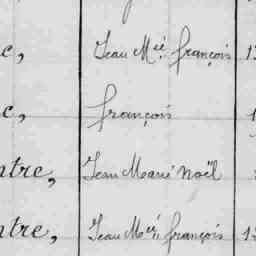 c, Jean M.ie françois 1
c, françois 1
ntre, Jean Marie Noël
ntre, Jean M.ie françois 1